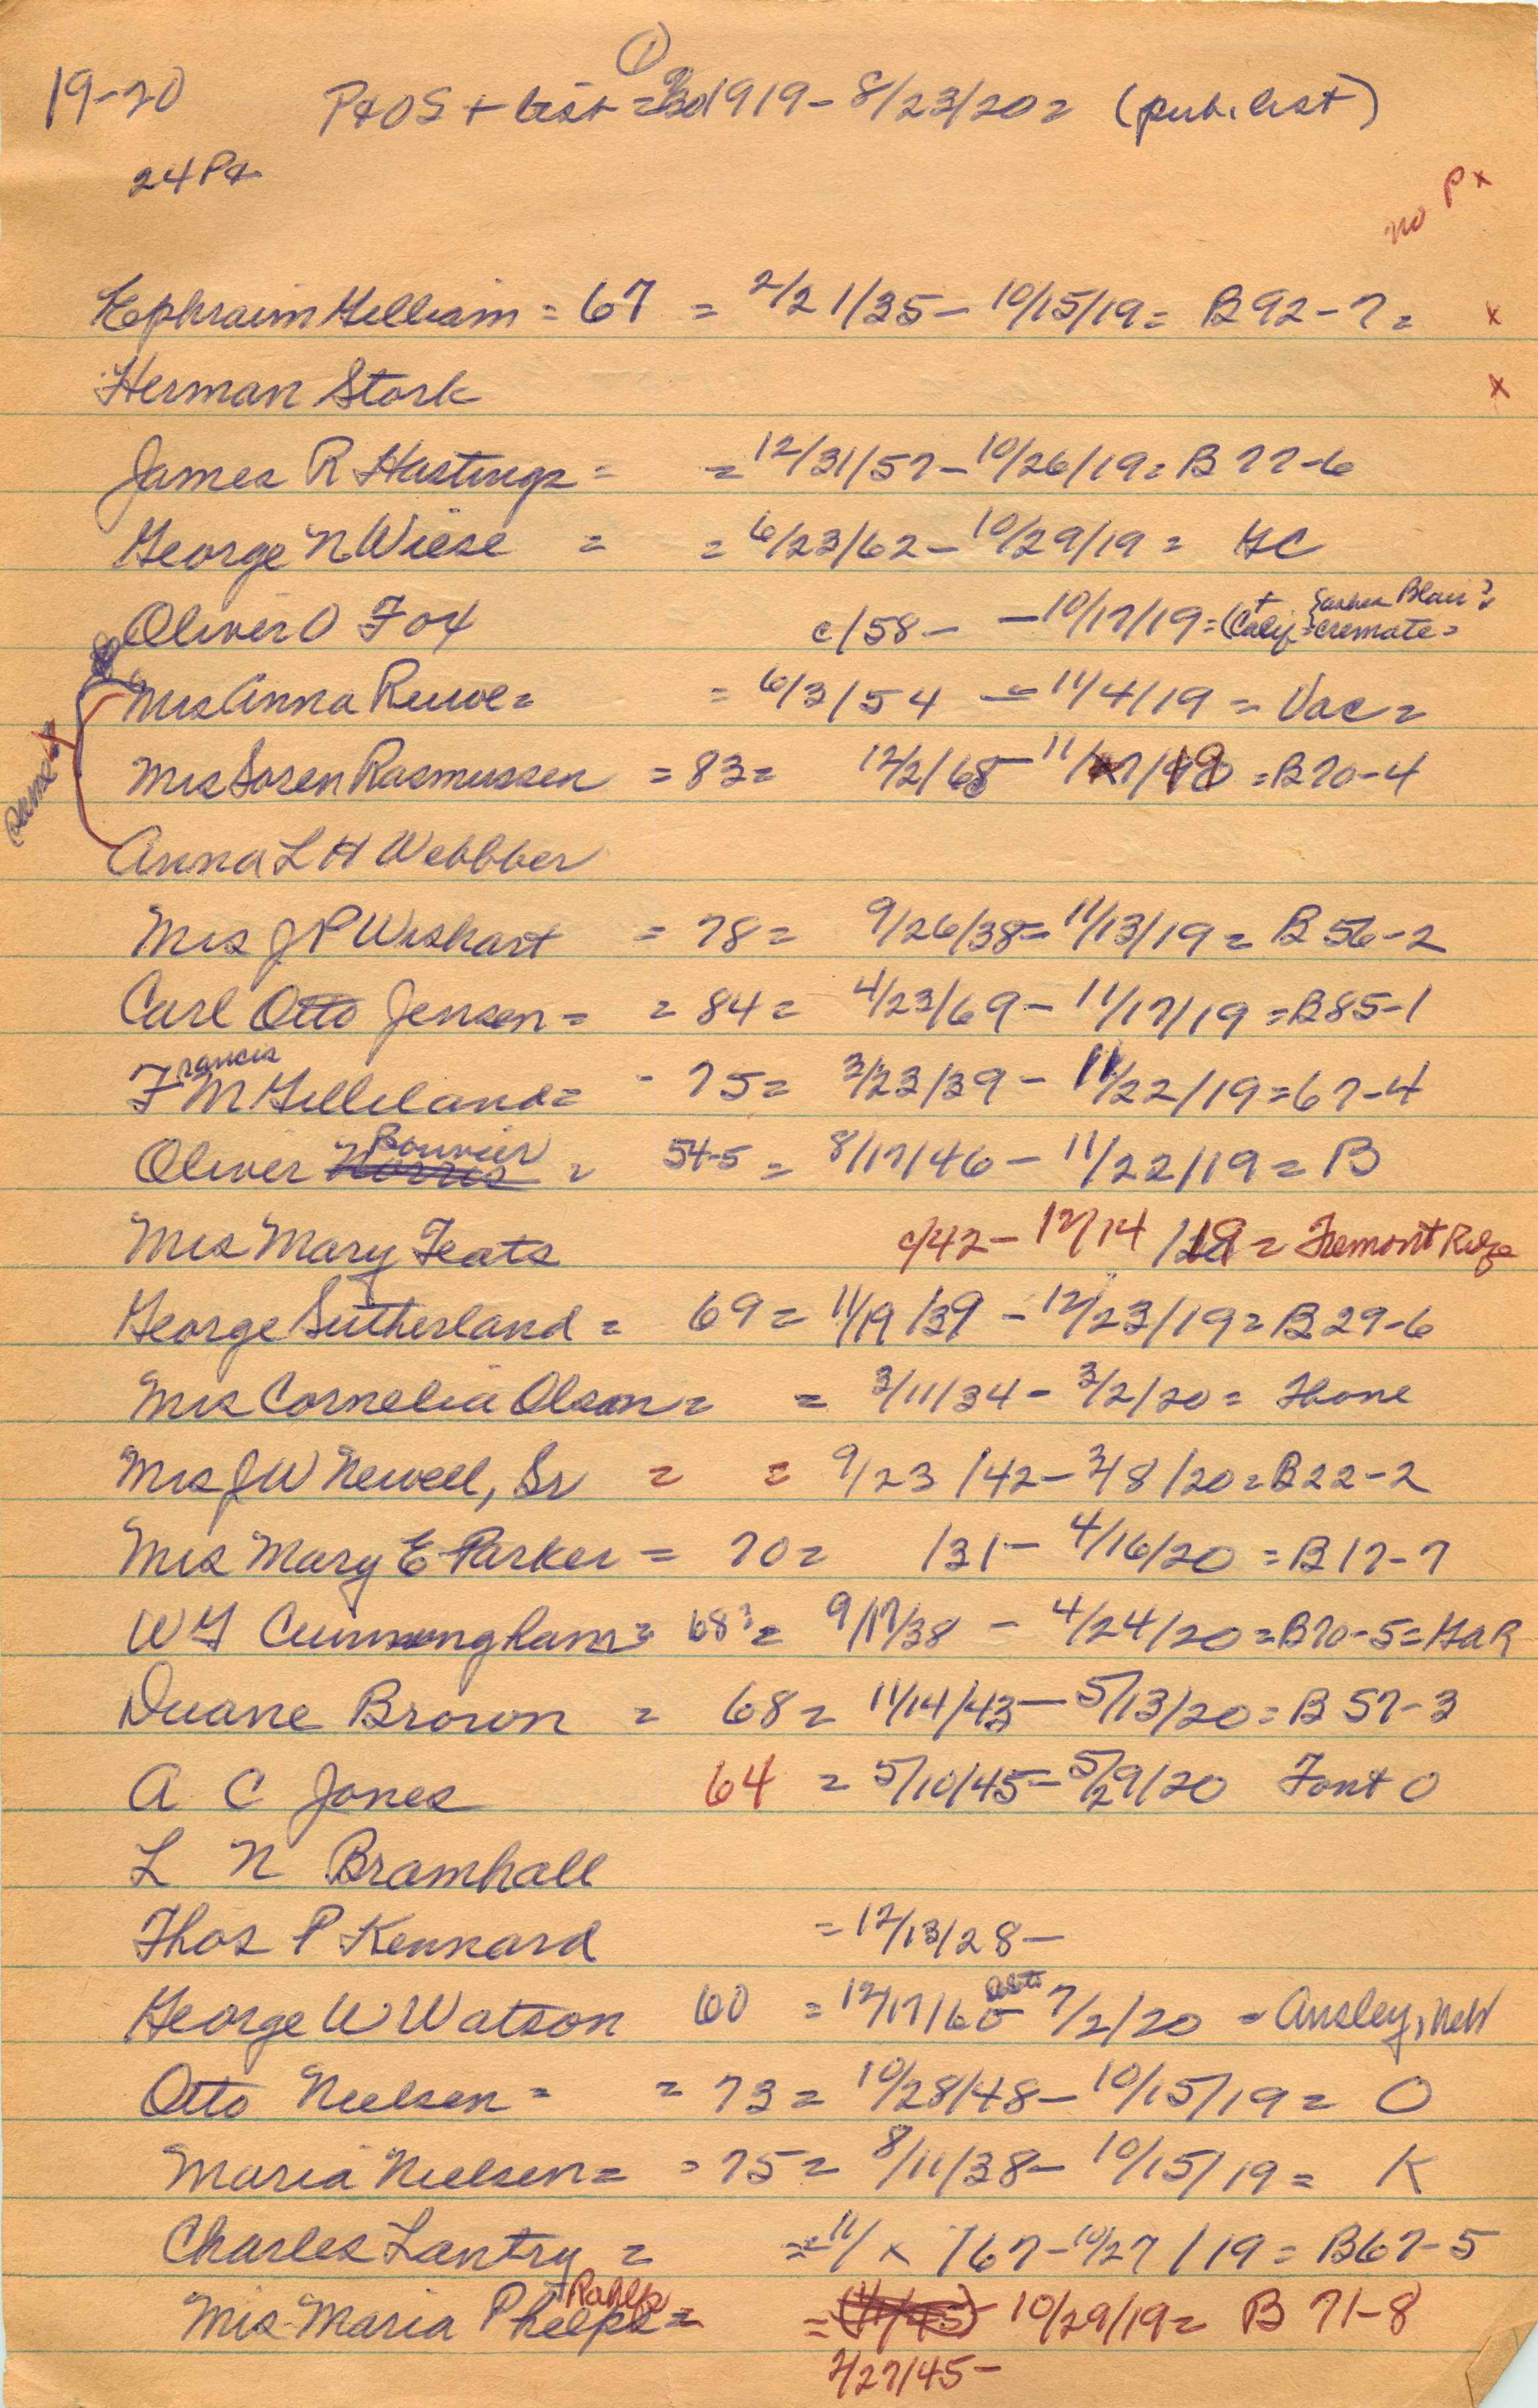 ①
19-20 P+OS + list = 1919 - 8/23/20 = (pub. list)
24 P+
no Px
Ephraim Gilliam = 67 = 2/21/35 - 10/15/19 = B 92-7 = x
Herman Stork x
James R Hastings = = 12/31/57 - 10/26/19 = B 77-6
George N Wiese = = 6/23/62 - 10/29/19 = GC
Oliver O Fox c/58 - - 10/17/19 = (Calif = cremate = + {ashes Blair?
Mrs Anna Ruwe = = 6/3/54 - 11/4/19 = Vac =
Mrs Soren Rasmussen = 83 = 12/2/65 - 11/7/19 = B 70-4
Anna L H Webbber
Mrs J P Wishart = 78 = 9/26/38 = 11/13/19 = B 56-2
Carl Otto Jensen = = 84 = 4/23/69 - 11/17/19 = B85-1
Francis
F M Gilleland = - 75 = 3/23/39 - 11/22/19 = 67-4
Bouvier
Oliver Norris = 54-5 = 8/17/46 - 11/22/19 = B
Mrs Mary Teats c/42 - 12/14/19 = Fremont Rdge
George Sutherland = 69 = 11/19/39 - 12/23/19 = B 29-6
Mrs Cornelia Olson = = 3/11/34 - 3/2/20 = Thone
Mrs J W Newell, Sr = = 9/23/42 - 3/8/20 = B22-2
Mrs Mary E Parker = 70 = /31 - 4/16/20 = B 17-7
W G Cunningham = 68? = 9/17/38 - 4/24/20 = B70-5 = GAR
Duane Brown = 68 = 11/14/43 - 5/13/20 = B 57-3
A C Jones 64 = 5/10/45 - 5/29/20 Font O
L N Bramhall
Thos P Kennard = 12/13/28 -
George W Watson 60 = 12/17/60 - 7/2/20 = Ansley, Neb
Otto Nielsen = = 73 = 10/28/48 - 10/15/19 = O
Maria Nielsen = = 75 = 8/11/38 - 10/15/19 = K
Charles Lantry = = 11/x/67 - 10/27/19 = B67-5
Rahlfs
Mrs Maria Phelps = = (11/45) 10/29/19 = B 71-8
2/27/45 -